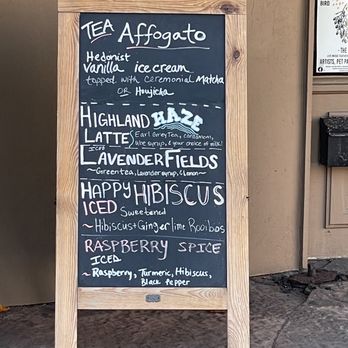 TEA Affogato
Hedonist
Vanilla ice cream
topped with ceremonial Matcha
OR Houjicha
HIGHLAND HAZE
LATTE Earl Grey Tea, cardamom,
& your choice of milk!
ICED
LAVENDER FIELDS
~Green tea, lavender syrup, & lemon~
HAPPY HIBISCUS
ICED Sweetened
~Hibiscus + Ginger lime Rooibos
RASPBERRY SPICE
ICED
~Raspberry, Turmeric, Hibiscus,
Black Pepper
BIRD
THE
ARTISTS, PET PA